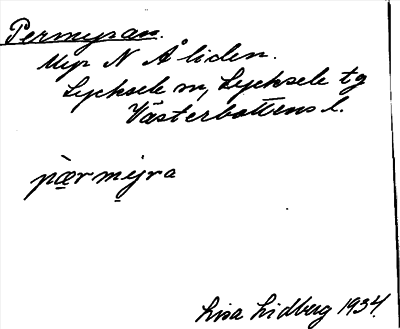 Permyran.
Myr N Åliden.
Lycksele sn, Lycksele tg
Västerbottens l.
pæ̀rmyra
Lisa Lidberg 1934.